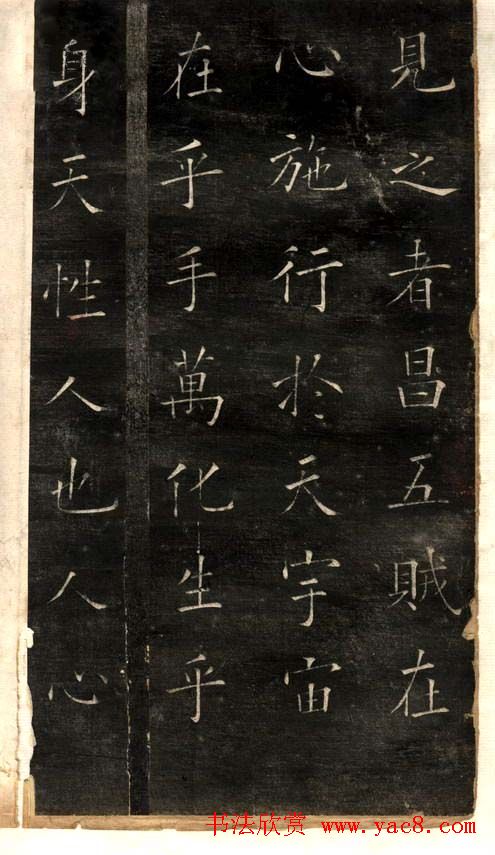 見之者昌五賊在
心施行於天宇宙
在乎手萬化生乎
身天性人也人心
书法欣赏 www.yac8.com